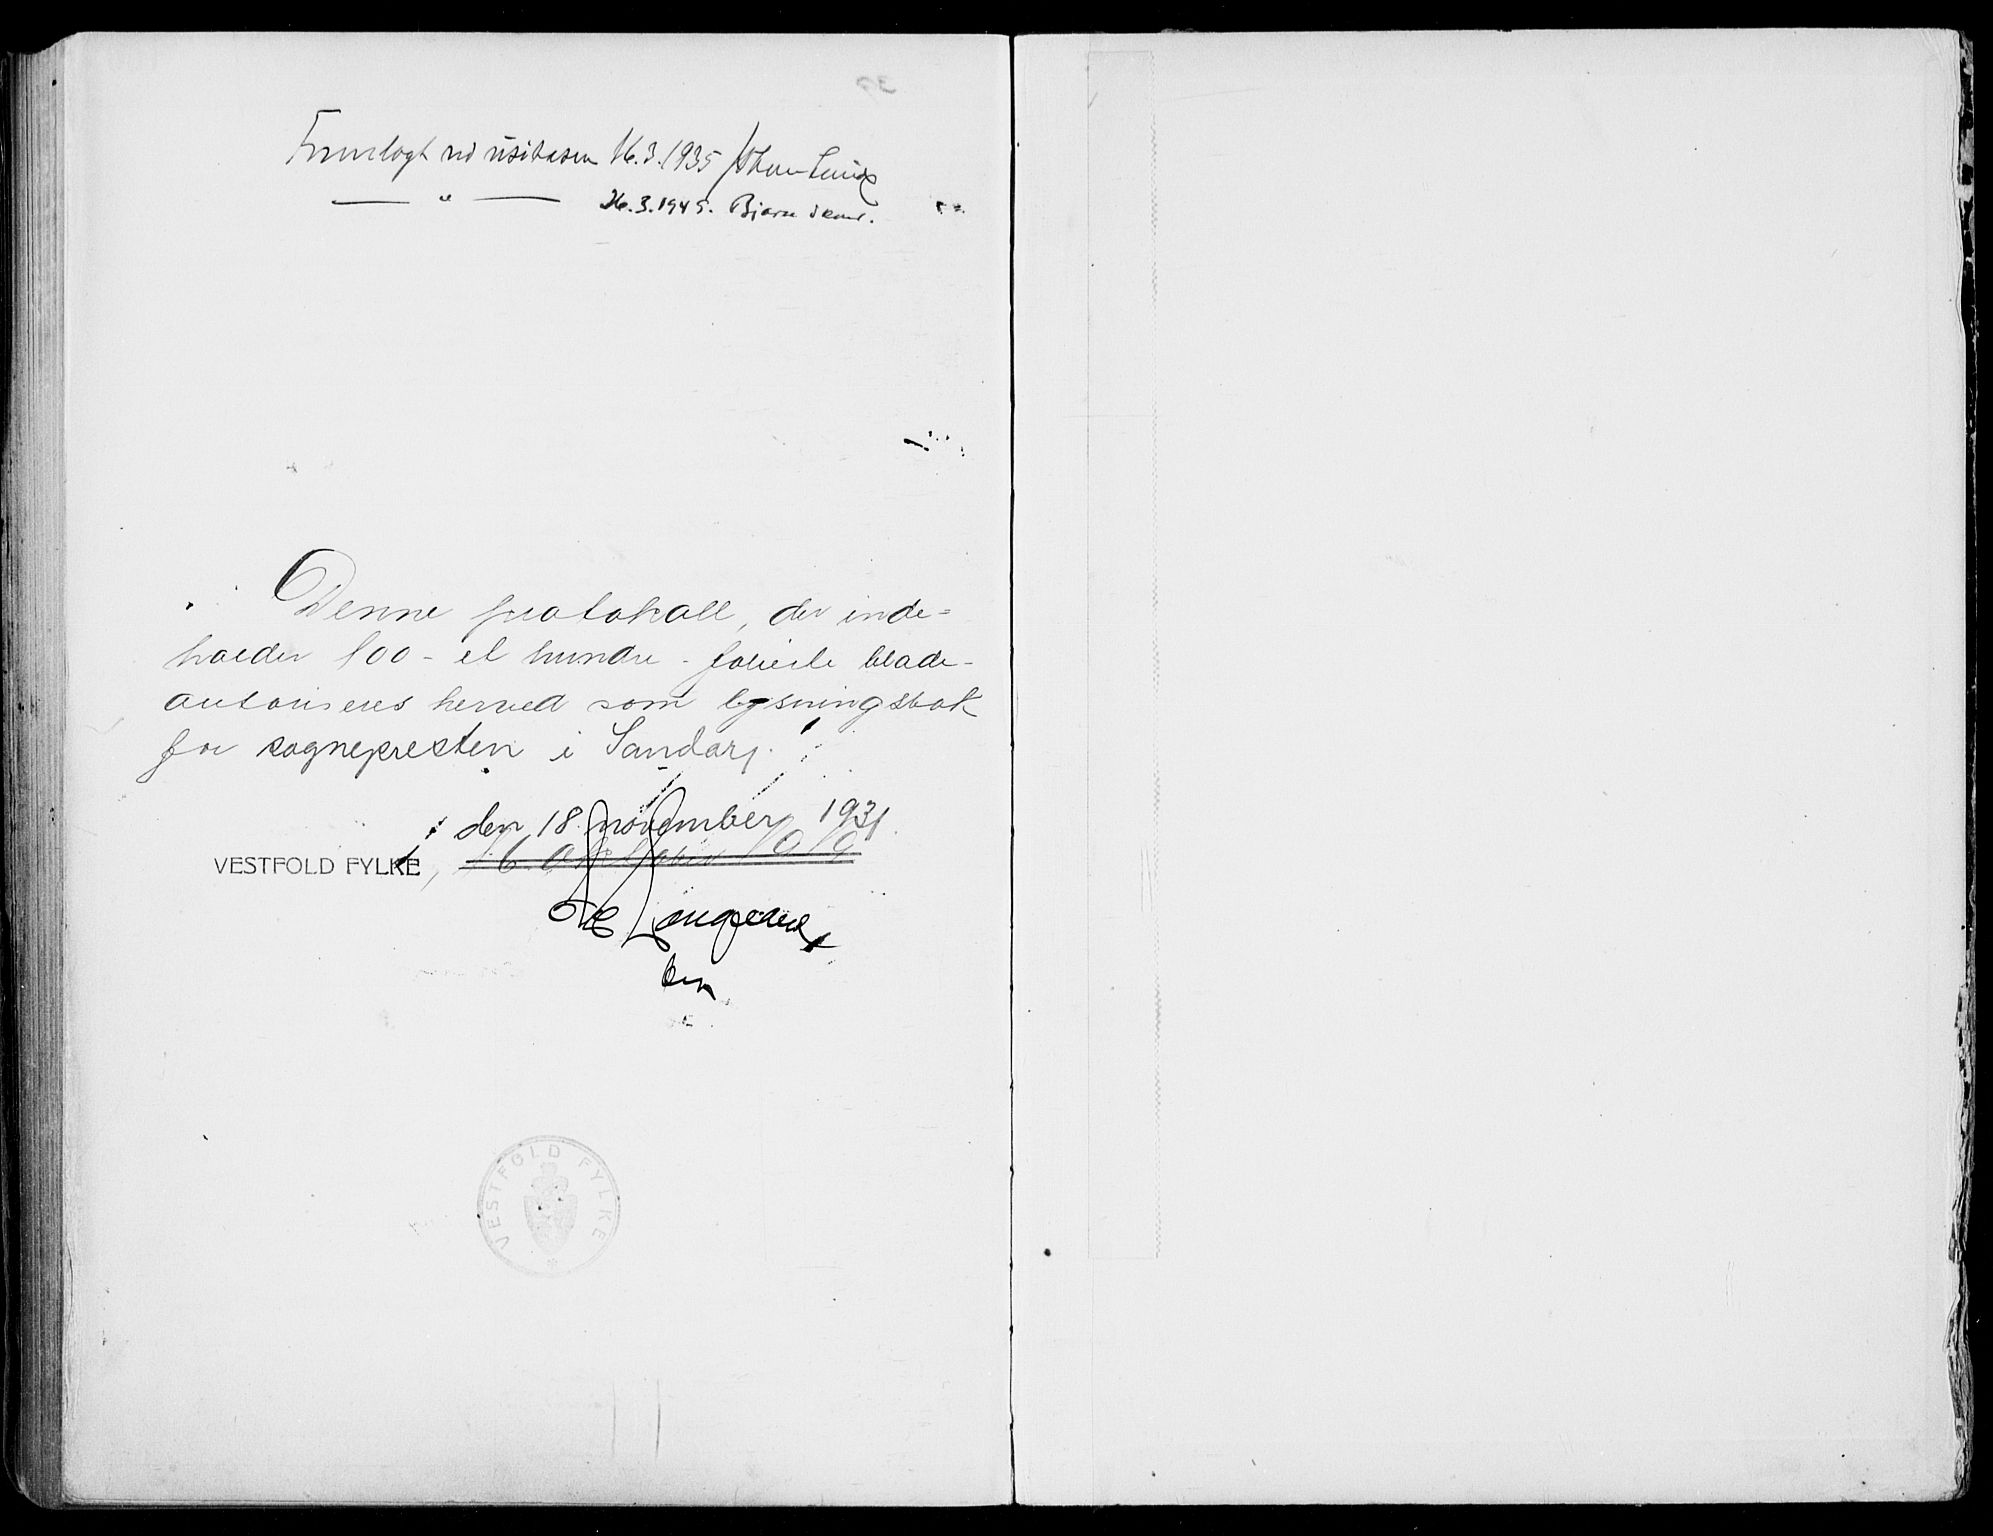 Fremlagt ved visitasen 16.3.1935 Johan Lunde
— " — 26.3.1945. Bjarne Skard.
Denne protokoll, der inde-
holder 100 - et hundre - folierte blade -
autoriseres herved som lysningsbok
for sognepresten i Sandar.
den 18 november 1931.
VESTFOLD FYLKE, 16. oktober 1919
VESTFOLD FYLKE